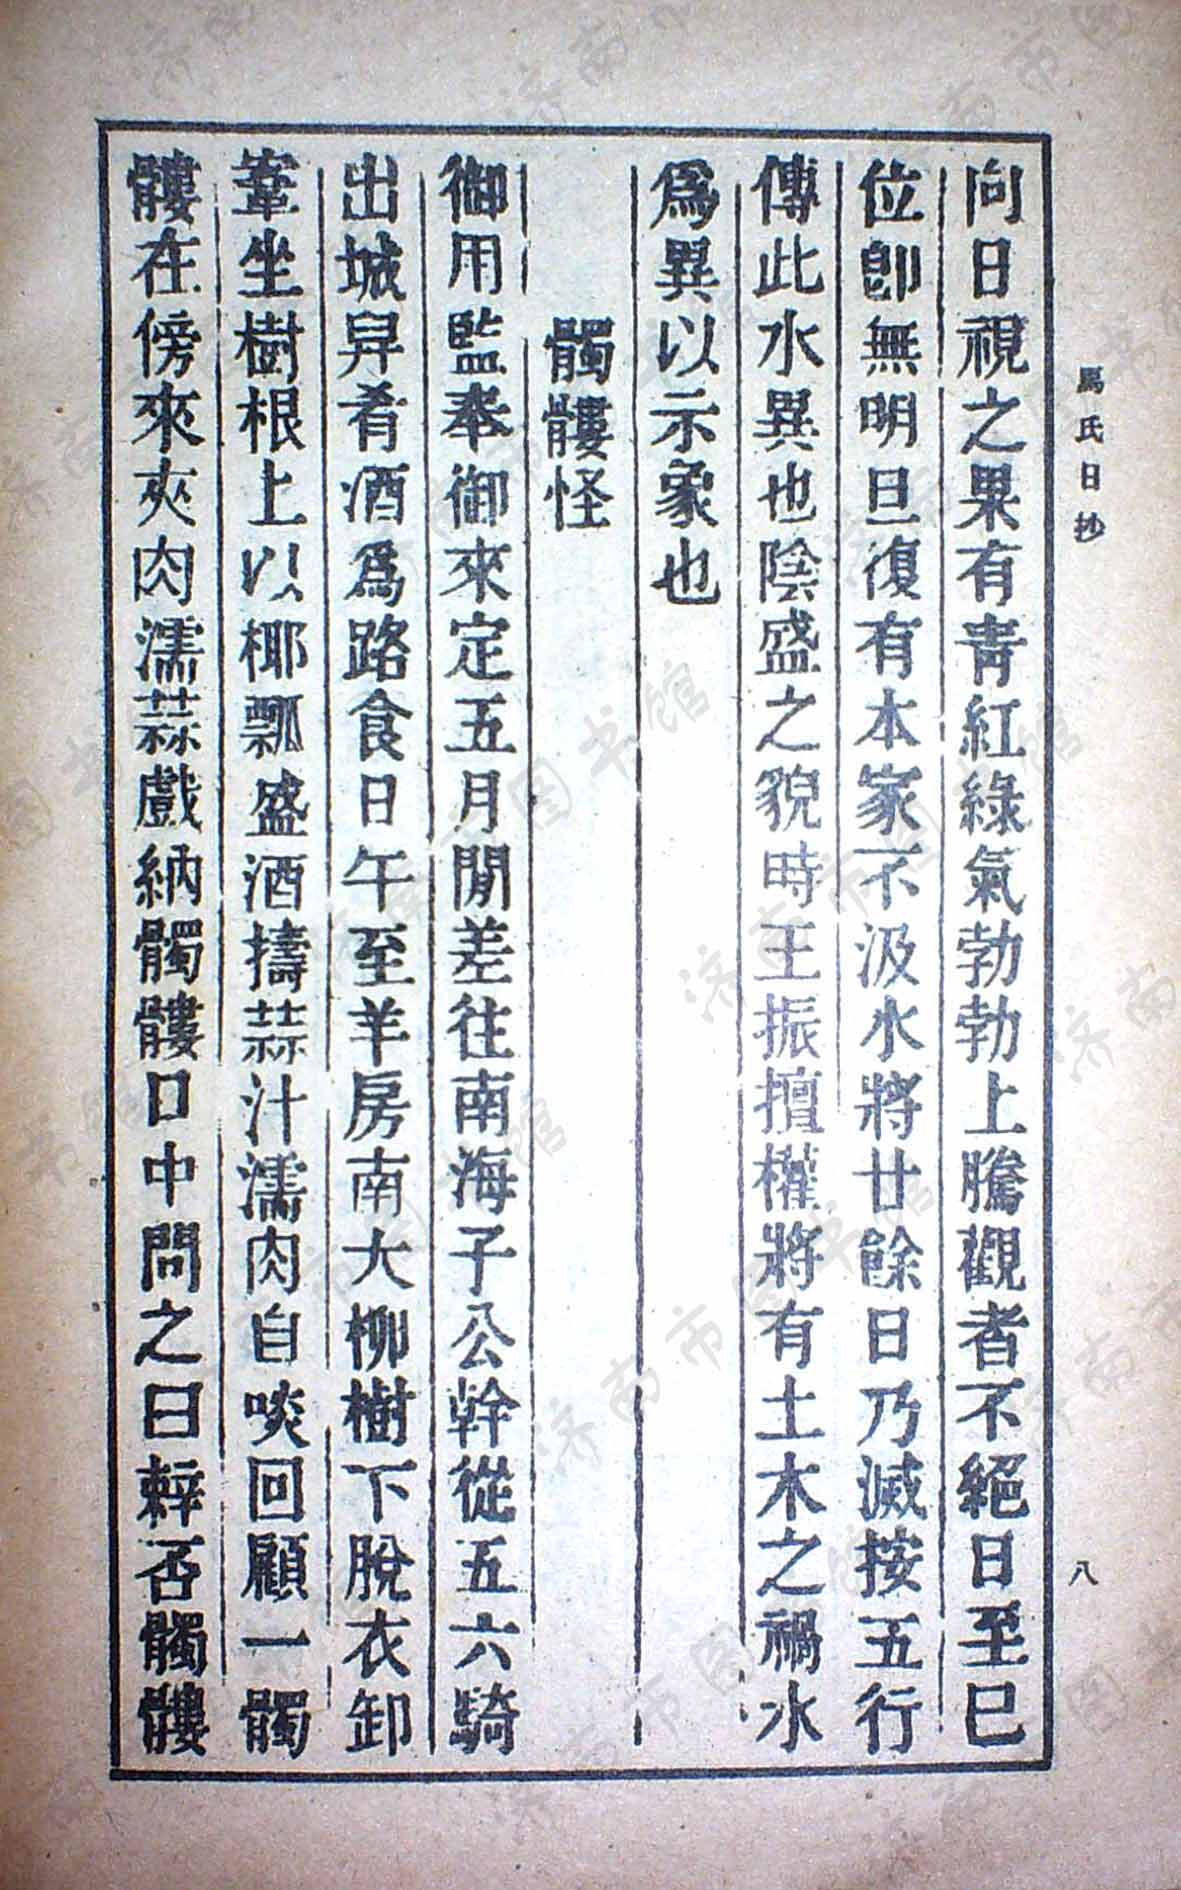 馬氏日抄
八
向日視之果有青紅綠氣勃勃上騰觀者不絕日至巳
位卽無明旦復有本家不汲水將廿餘日乃滅按五行
傳此水異也陰盛之貌時王振擅權將有土木之禍水
爲異以示象也
髑髏怪
御用監奉御來定五月閒差往南海子公幹從五六騎
出城舁肴酒爲路食日午至羊房南大柳樹下脫衣卸
鞌坐樹根上以椰瓢盛酒擣蒜汁濡肉自啖回顧一髑
髏在傍來夾肉濡蒜戲納髑髏口中問之曰辣否髑髏
济南市图书馆